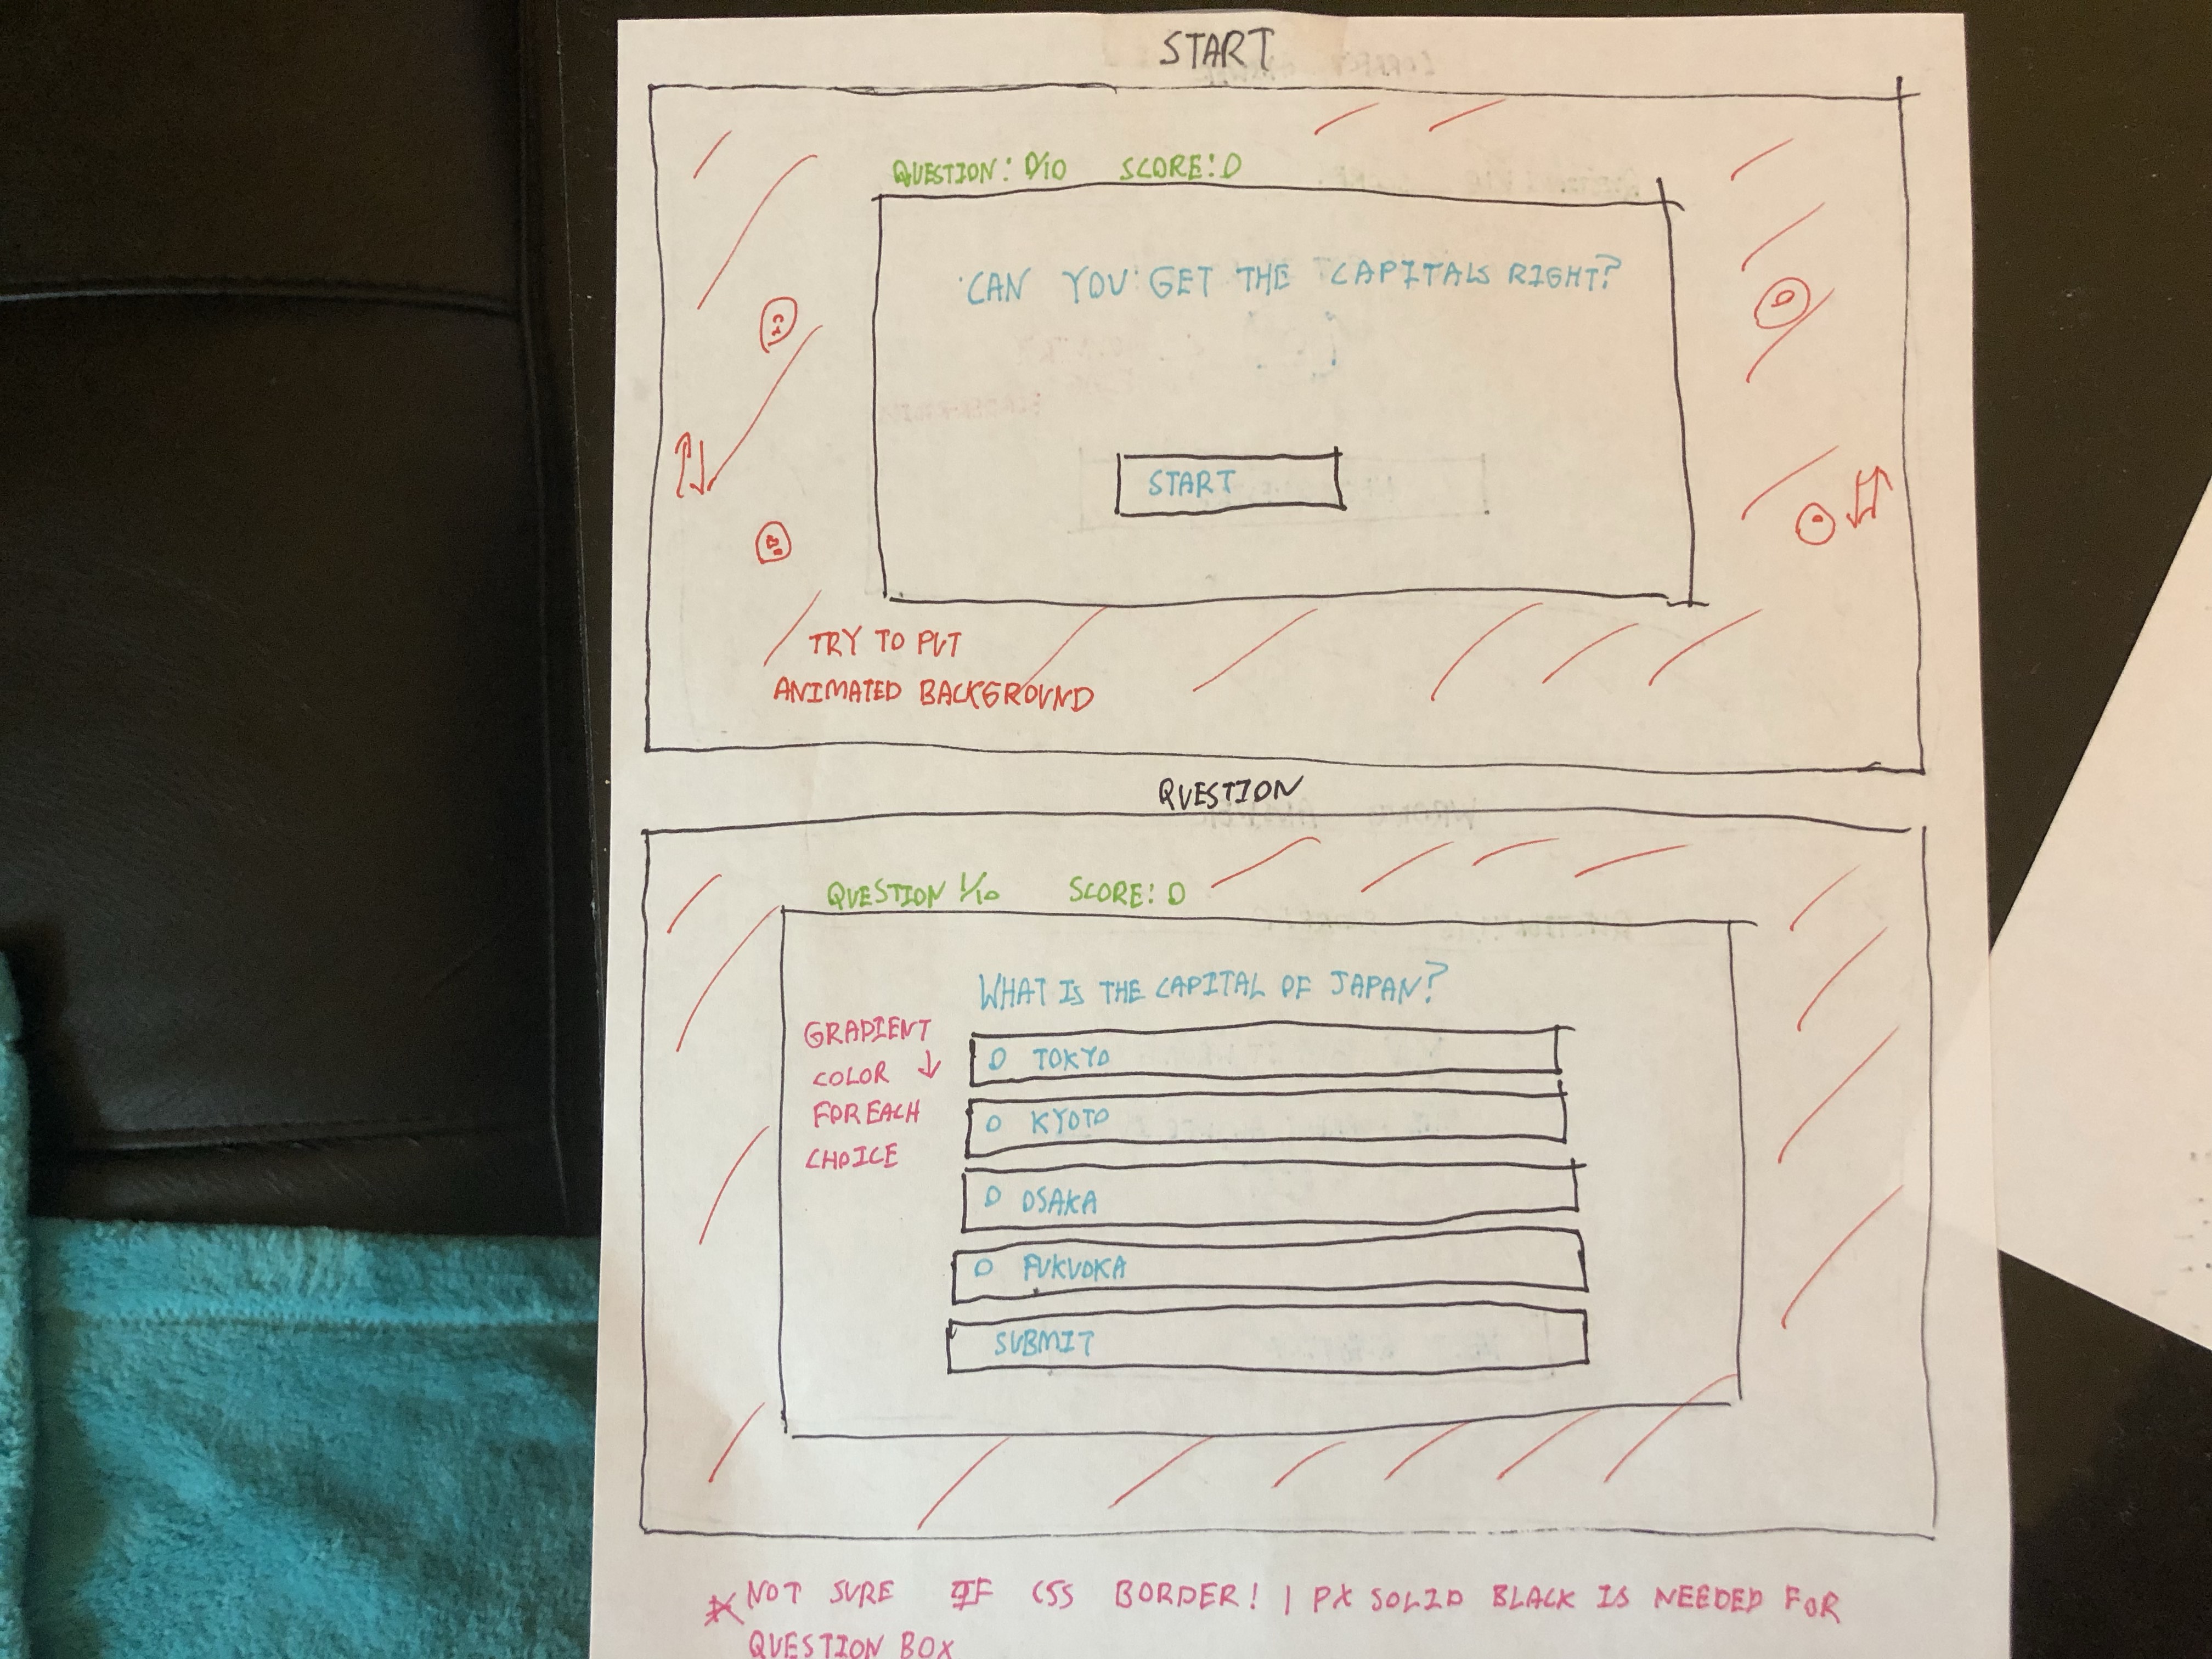 START
QUESTION: 0/10 SCORE: 0
CAN YOU GET THE CAPITALS RIGHT?
START
TRY TO PUT
ANIMATED BACKGROUND
QUESTION
QUESTION 1/10 SCORE: 0
WHAT IS THE CAPITAL OF JAPAN?
GRADIENT
COLOR ↓
FOR EACH
CHOICE
O TOKYO
O KYOTO
O OSAKA
O FUKUOKA
SUBMIT
* NOT SURE IF CSS BORDER: 1 PX SOLID BLACK IS NEEDED FOR
QUESTION BOX